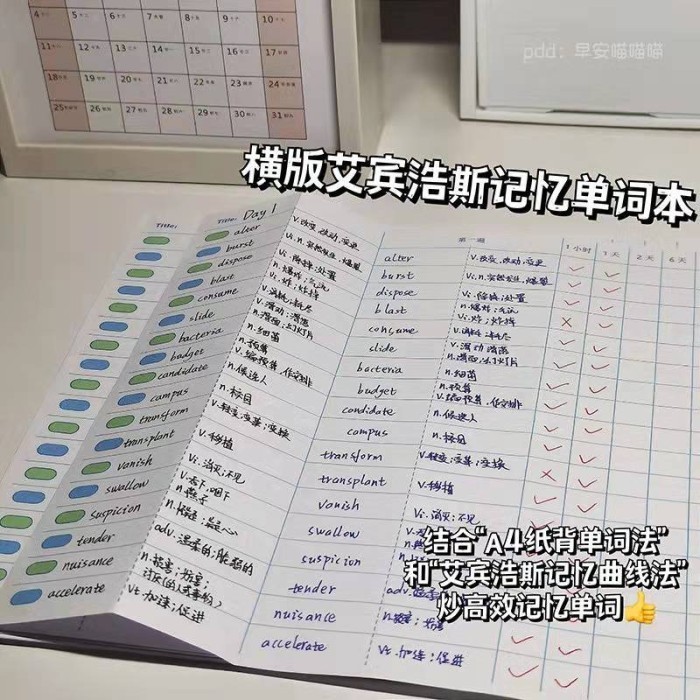 4 5 6 7 8 9 10
11 12 13 14 15 16 17
18 19 20 21 22 23 24
25 26 27 28 29 30 31
pdd：早安喵喵喵
横版艾宾浩斯记忆单词本
Title:
Title: Day 1
第一遍 1小时 1天 2天 6天
alter v.改变,改动,变更 alter v.改变,改动,变更
burst burst
dispose vi.除掉;处置 dispose vi.除掉;处置
blast n.爆炸;气流 blast n.爆炸;气流
vi.炸;炸掉 vi.炸;炸掉
consame v.消耗;耗尽 consame v.消耗;耗尽
slide v.滑动;滑落 slide v.滑动;滑落
n.滑道;幻灯片 n.滑道;幻灯片
bacteria n.细菌 bacteria n.细菌
badget n.预算 budget n.预算
candidate n.候选人 candidate n.候选人
campus n.校园 campus n.校园
transform v.转变;变革;变换 transform v.转变;变革;变换
transplant v.移植 transplant v.移植
vanish vi.消灭;不见 vonish vi.消灭;不见
swallow v.吞下,咽下 swallow
n.燕子
suspicion suspicion
tender adv.温柔的; tender adv.
nuisance n.损害;妨害; nuisance n.损害;妨害
讨厌(人或事物)
accelerate vt.加速;促进 accelerate vt.加速;促进
结合“A4纸背单词法”
和“艾宾浩斯记忆曲线法”
炒高效记忆单词👍